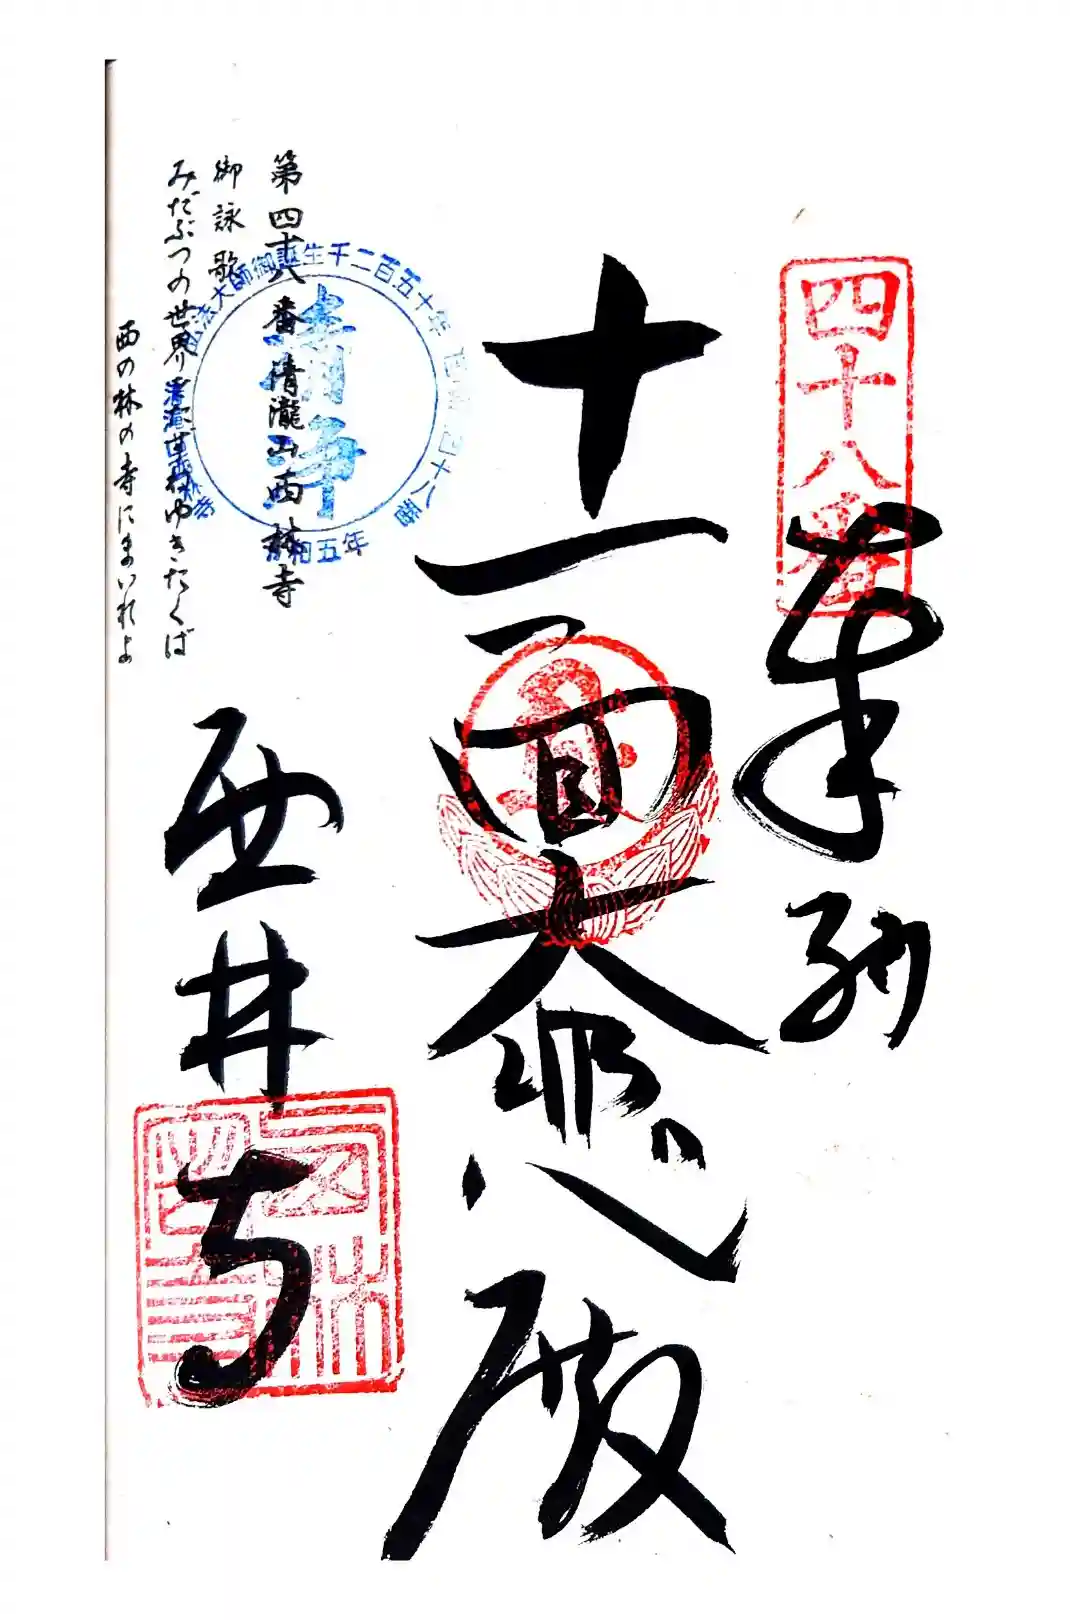 四十八番
奉納
十一面大悲殿
西林寺
第四十八番 清瀧山 西林寺
御詠歌
みだぶつの世界
ゆきたくば
西の林の寺にまいれよ
弘法大師御誕生千二百五十年
四十八番
清浄
五年